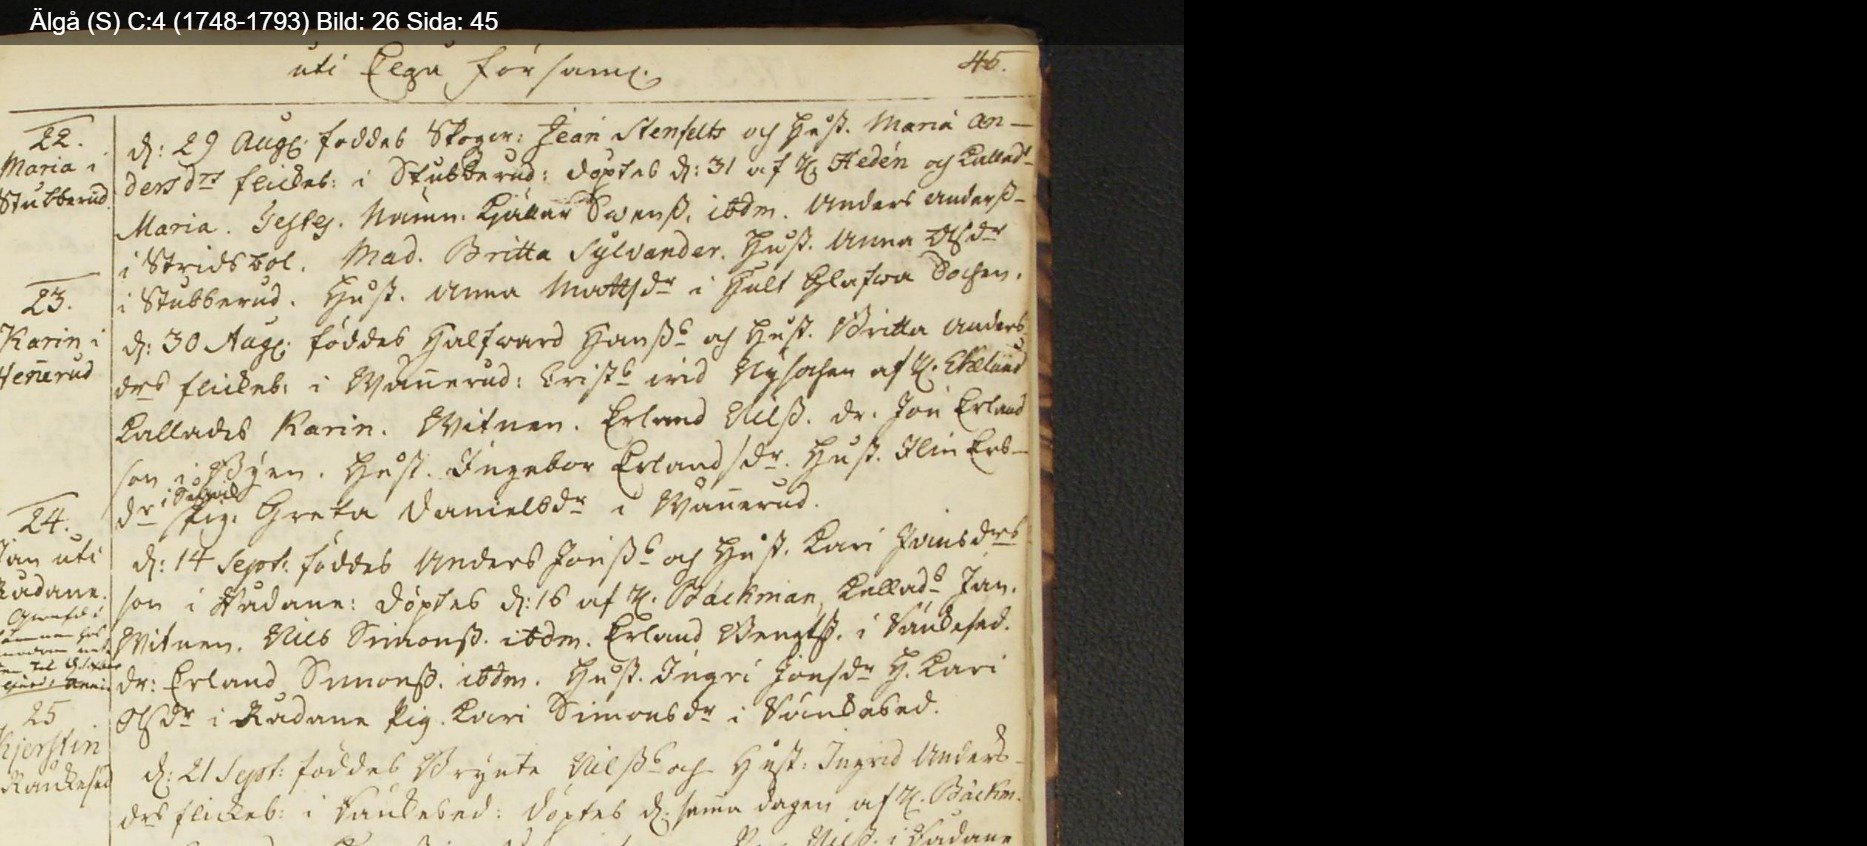 Älgå (S) C:4 (1748-1793) Bild: 26 Sida: 45
uti Elga församl.
45.
22.
Maria i
Stubberud
d: 29 Aug: foddes Skogw: Jean Stenfelts och Hust. Maria An-
ders drs flickeb: i Stubberud: döptes d: 31 af H. Hedén och kallad-
Maria. Testes. Nämn: Swenß. ibdm. Anders Anderß-
i Stridsbol. Mad. Britta Sylvander. Hust. Anna Olsdr
i Stubberud. Hust. Anna Mattsdr i Hult Glafwa Sochen.
23.
Karin i
d: 30 Aug: föddes Halfward Hanßs och Hust. Britta Anders
drs flickeb: i Wännerud: Christs wid Nysochen af H. Ekelund
kallades Karin. Witnen. Erland Nilß. dr. Jon Erland
son i Byen. Hust. Ingebor Erlandsdr. Hust. Elin Ers-
dr Pig: Greta Danielsdr i Wännerud.
24.
Jan uti
Rådane.
d: 14 Sept: föddes Anders Jonßs och Hust. Kari Jonsdrs
son i Rådane: döptes d: 16 af H. Bäckman, kallads Jan.
Witnen. Nils Simonß. ibdm. Erland Bengtß. i Ränkesed.
dr: Erland Simonß. ibdm. Hust. Ingri Jonsdr H. Kari
Olsdr i Rådane Pig. Kari Simonsdr i Ränkesed.
25
Kjerstin
Ränkesed
d: 21 Sept: föddes Brynte Nilßs och Hust: Ingrid Anders-
drs flickeb: i Ränkesed: döptes d: sama dagen af H. Bäckm.
Nilß. i Rådane